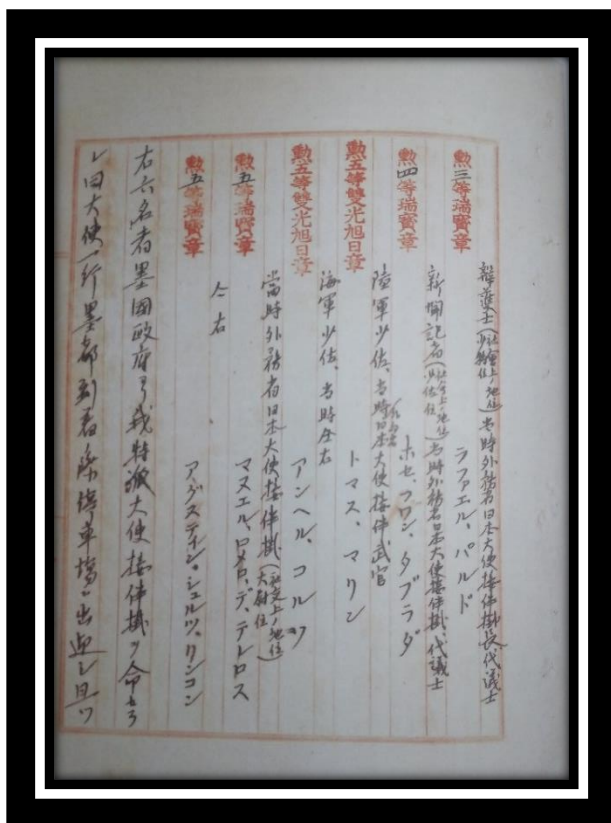 勲三等瑞寶章
辯護士(社會上ノ地位少将位)当時外務省日本大使接伴掛長、代議士
ラファエル、パルド
勲四等瑞寶章
新聞記者(社会上ノ地位少佐位)当時外務省日本大使接伴掛、代議士
ホセ、フワン、タブラダ
勲五等雙光旭日章
陸軍少佐、当時日本大使接伴武官
トマス、マリン
勲五等雙光旭日章
海軍少佐、当時仝右
アンヘル、コルツ
勲五等瑞寶章
當時外務省日本大使接伴掛(社交上ノ地位大尉位)
マヌエル、ロメロ、デ、テレロス
勲五等瑞寶章
仝右
アグスティン、シュルツ、リンコン
右六名者墨国政府ヨリ我特派大使接伴掛ヲ命セラ
レ同大使一行墨都到着ノ際停車場ニ出迎ヒ且ツ